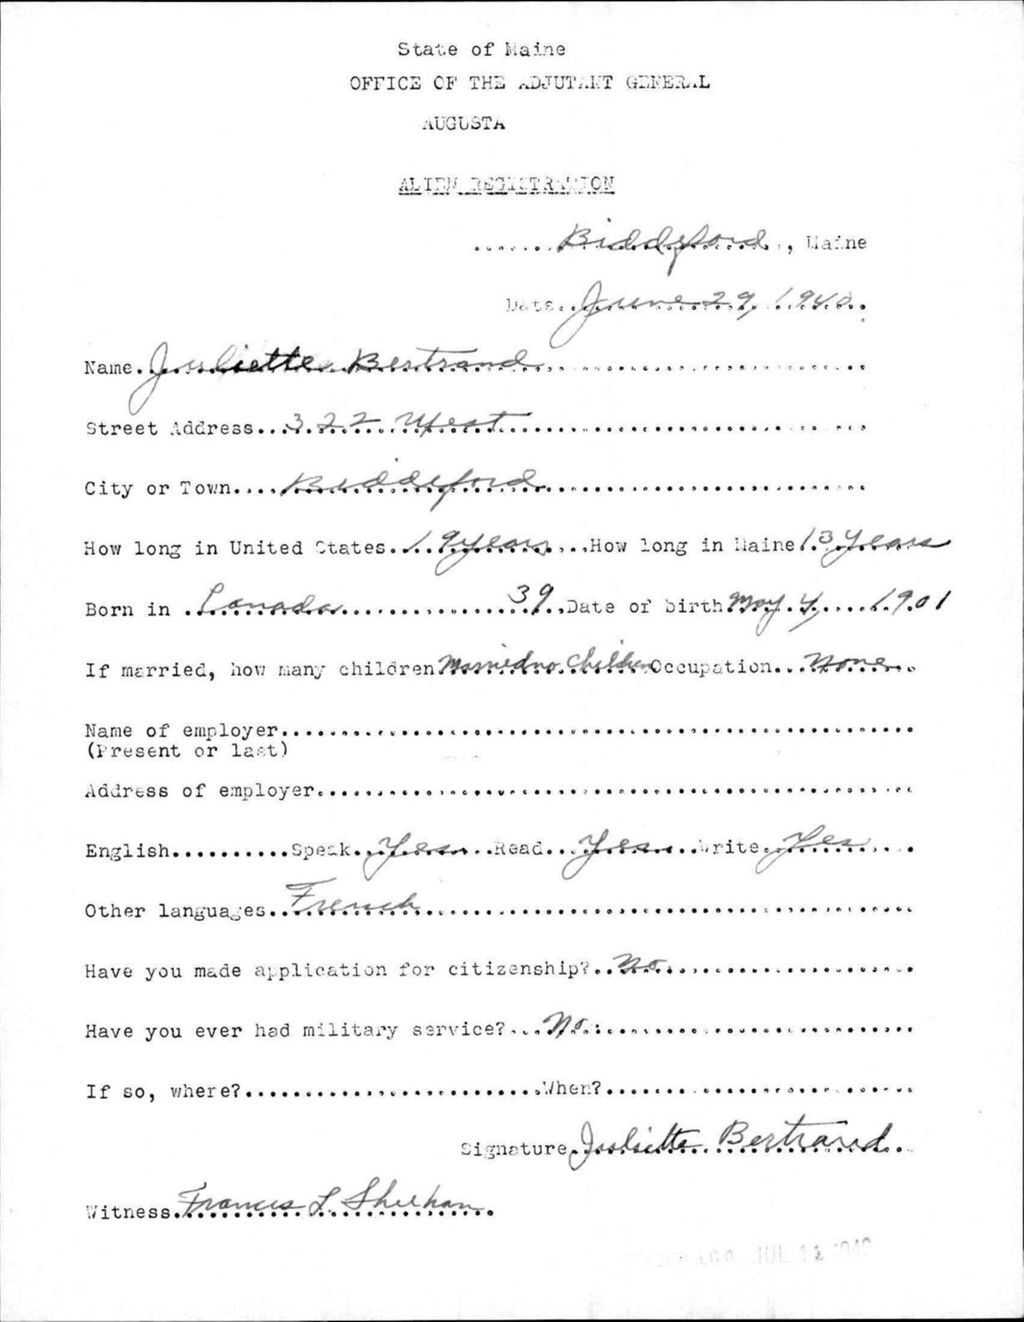 State of Maine
OFFICE OF THE ADJUTANT GENERAL
AUGUSTA
ALIEN REGISTRATION
.......Biddeford.., Maine
Date..June 29, 1940.
Name.Juliette Bertrand
Street Address...322 West
City or Town....Biddeford
How long in United States...19 years...How long in Maine 13 years
Born in .Canada 39.Date of birth May 4, 1901
If married, how many children Married no Children Occupation...None..
Name of employer
(Present or last)
Address of employer
English..........Speak..Yes...Read...Yes...Write..Yes
Other languages..French
Have you made application for citizenship?..No
Have you ever had military service?...No
If so, where?.........................When?
Signature.Juliette Bertrand
Witness.Francis L Sheehan
JUL 12 1940